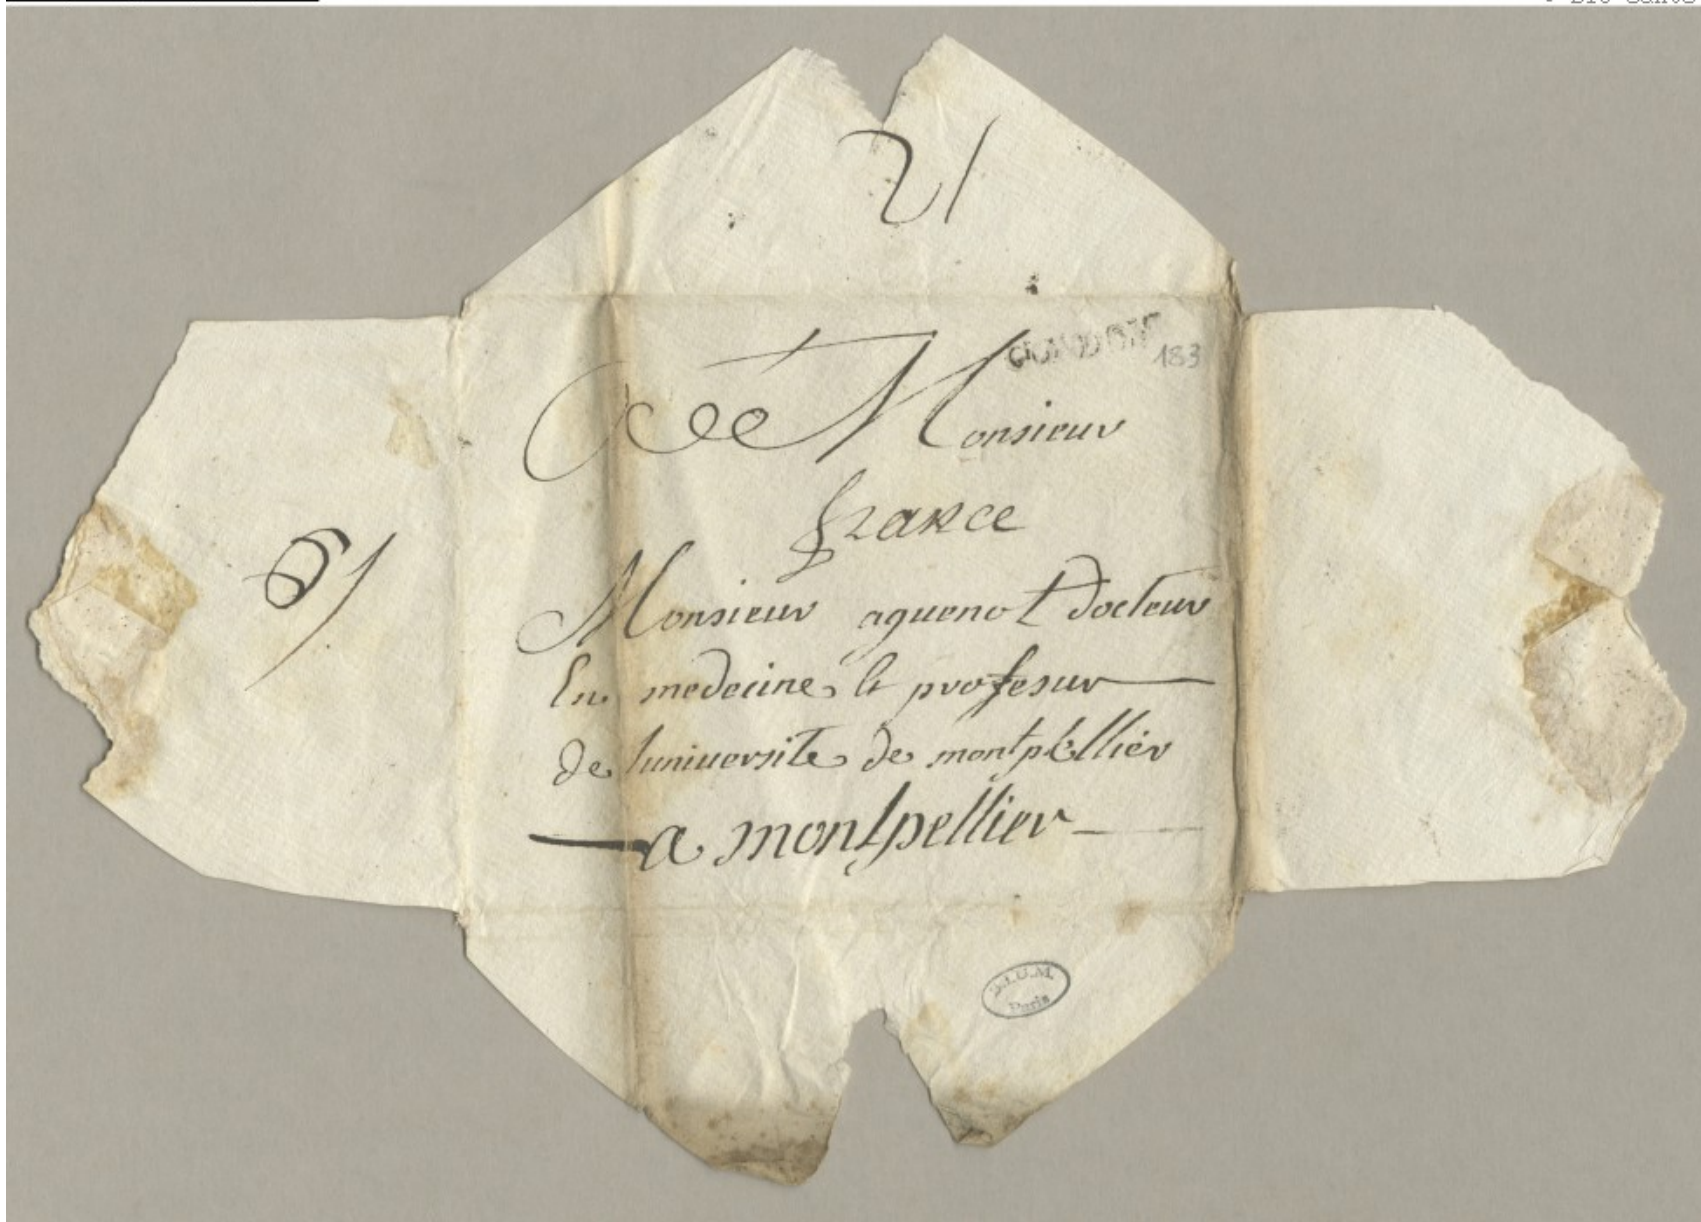 21
183
A Monsieur
france
Monsieur aquenot docteur
En medecine et profesur
de luniversite de montpellier
a montpellier
B.I.U.M.
Paris